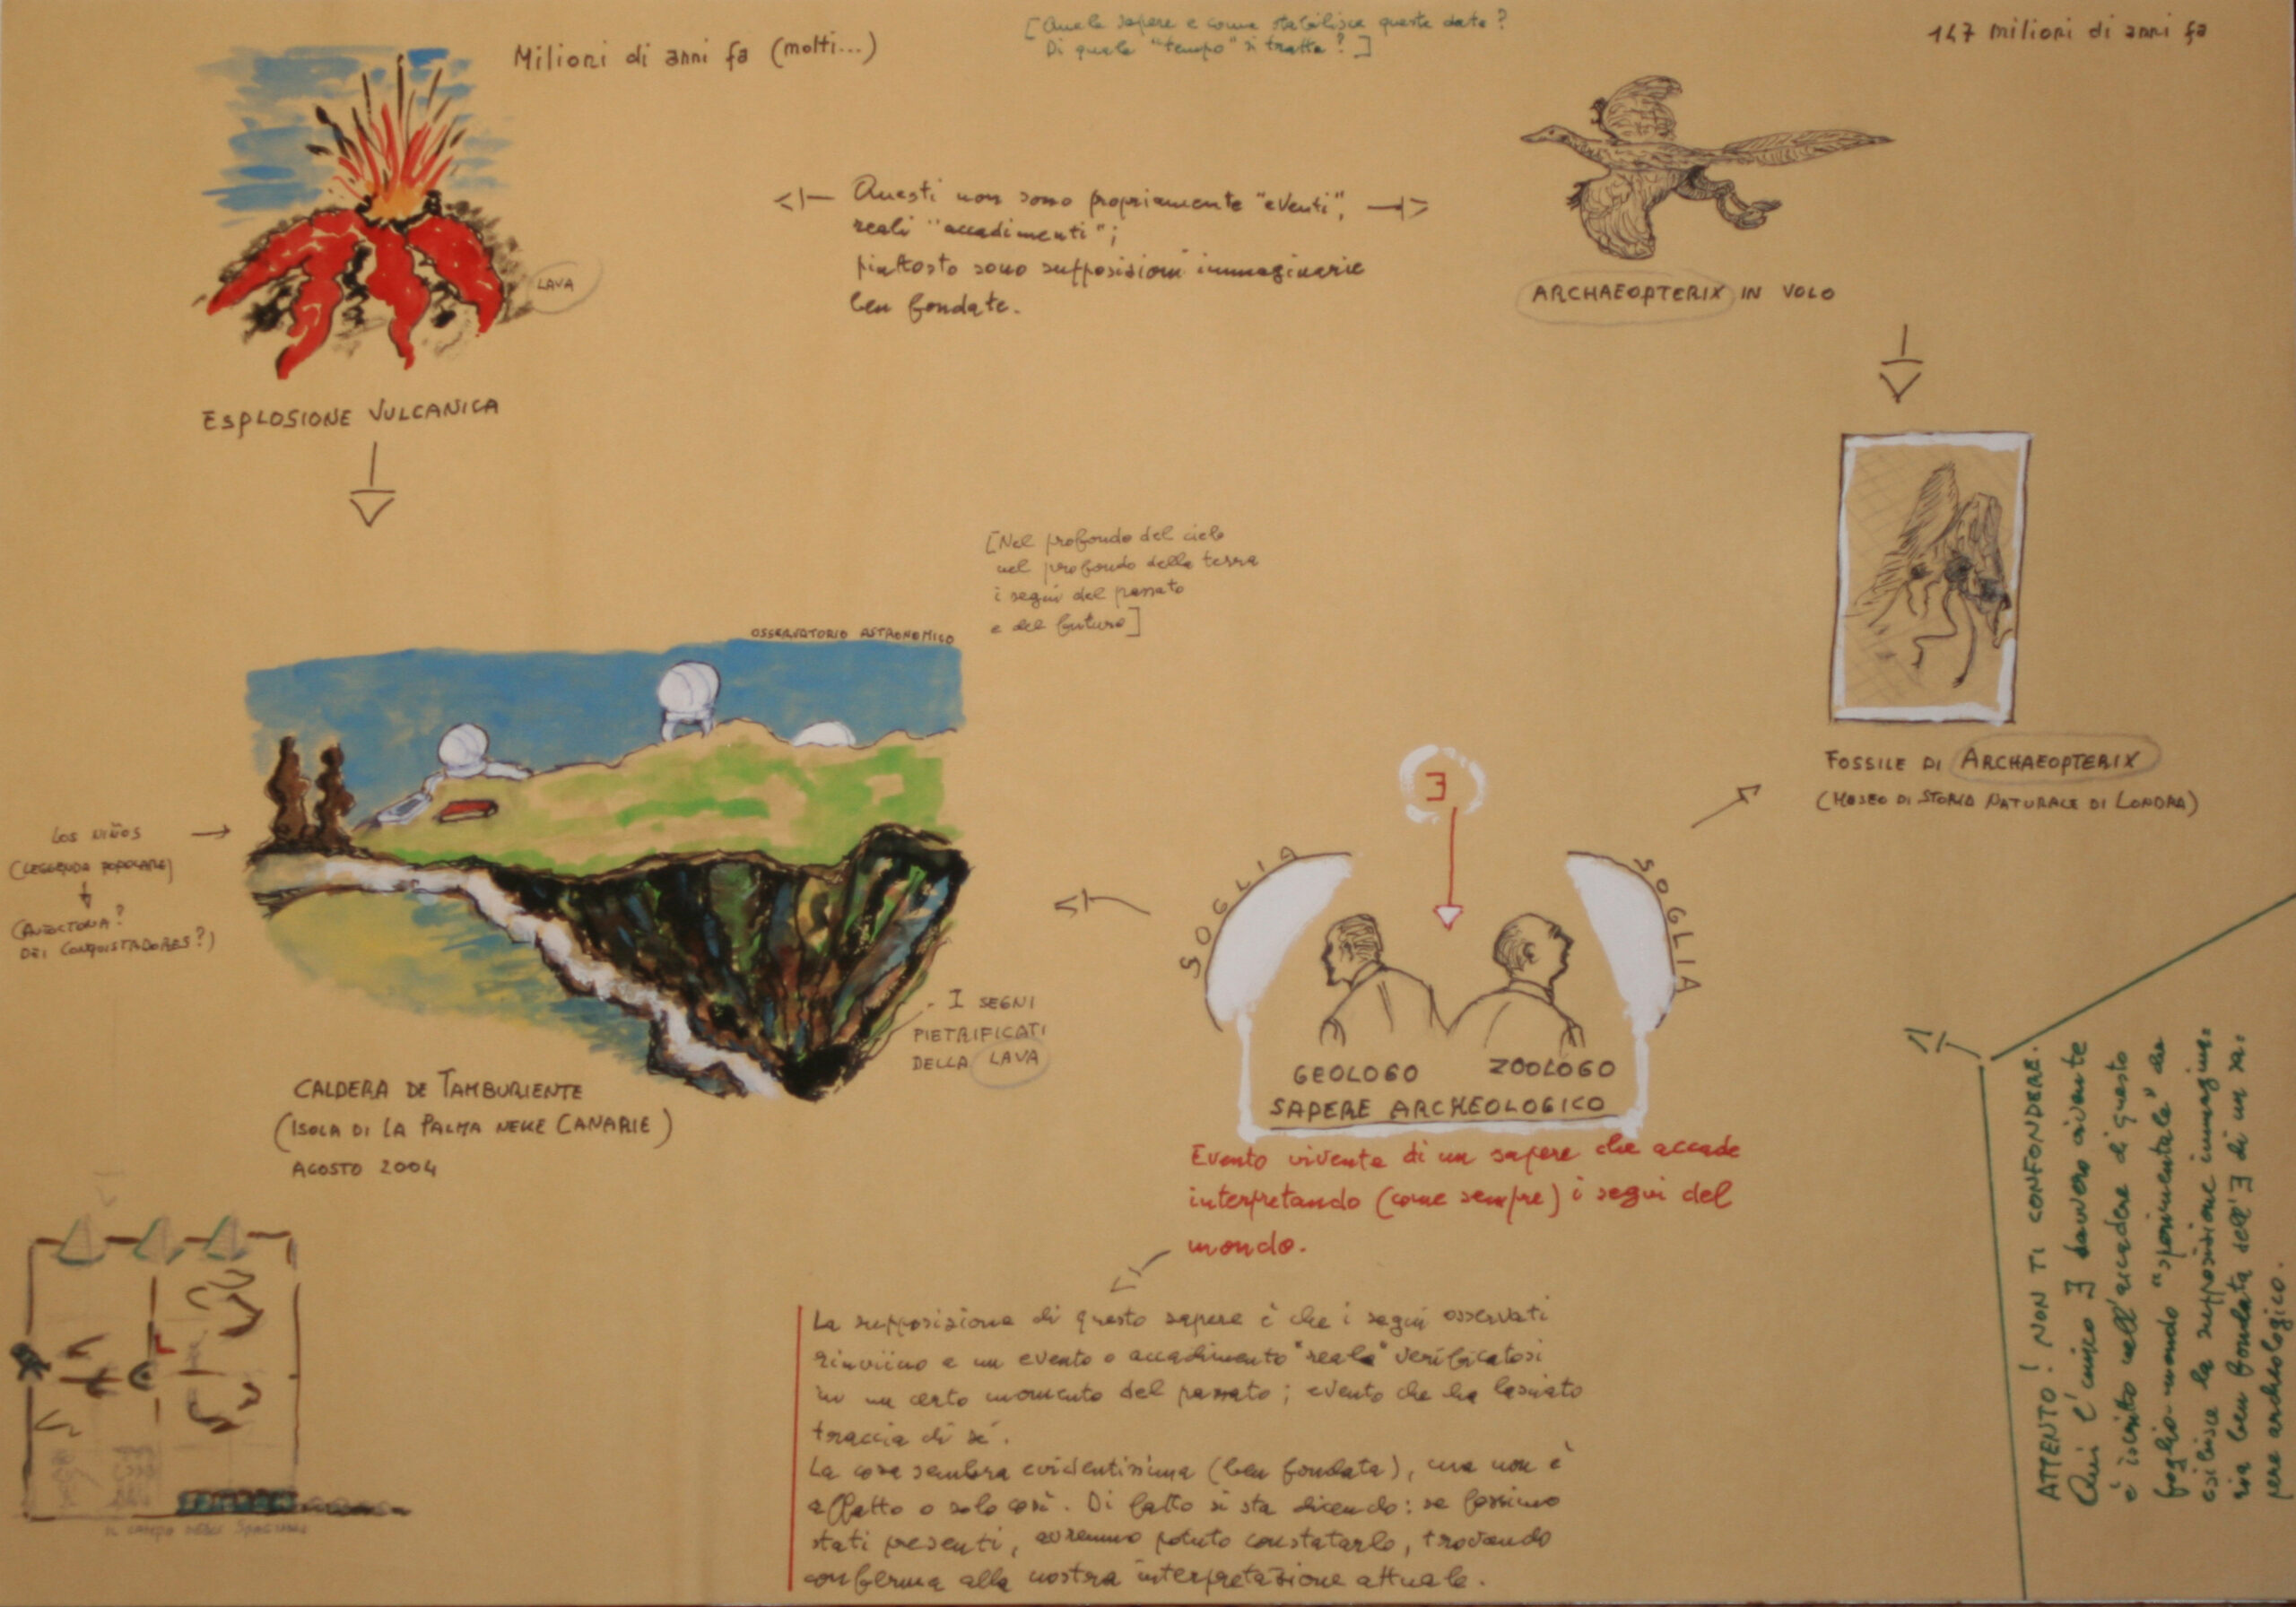 Milioni di anni fa (molti...)
[Quale sapere e come stabilisce queste date?
Di quale "tempo" si tratta?]
147 milioni di anni fa
LAVA
ESPLOSIONE VULCANICA
Questi non sono propriamente "eventi",
reali "accadimenti";
piuttosto sono supposizioni immaginarie
ben fondate.
ARCHAEOPTERIX IN VOLO
[Nel profondo del cielo
nel profondo della terra
i segni del passato
e del futuro]
OSSERVATORIO ASTRONOMICO
FOSSILE DI ARCHAEOPTERIX
(MUSEO DI STORIA NATURALE DI LONDRA)
LOS NIÑOS
(LEGGENDA POPOLARE)
(AUTOCTONA?
DEI CONQUISTADORES?)
I SEGNI
PIETRIFICATI
DELLA LAVA
CALDERA DE TAMBURIENTE
(ISOLA DI LA PALMA NELLE CANARIE)
AGOSTO 2004
∃
SOGLIA
SOGLIA
GEOLOGO
ZOOLOGO
SAPERE ARCHEOLOGICO
Evento vivente di un sapere che accade
interpretando (come sempre) i segni del
mondo.
La supposizione di questo sapere è che i segni osservati
rinviino a un evento o accadimento "reale" verificatosi
in un certo momento del passato; evento che ha lasciato
traccia di sé.
La cosa sembra evidentissima (ben fondata), ma non è
affatto o solo così. Di fatto si sta dicendo: se fossimo
stati presenti, avremmo potuto constatarlo, trovando
conferma alla nostra interpretazione attuale.
ATTENTO! NON TI CONFONDERE.
Qui l'unico ∃ davvero vivente
è iscritto nell'accadere di questo
foglio-mondo "sperimentale" che
esibisce la supposizione immagina-
ria ben fondata dell'∃ di un sa-
pere archeologico.